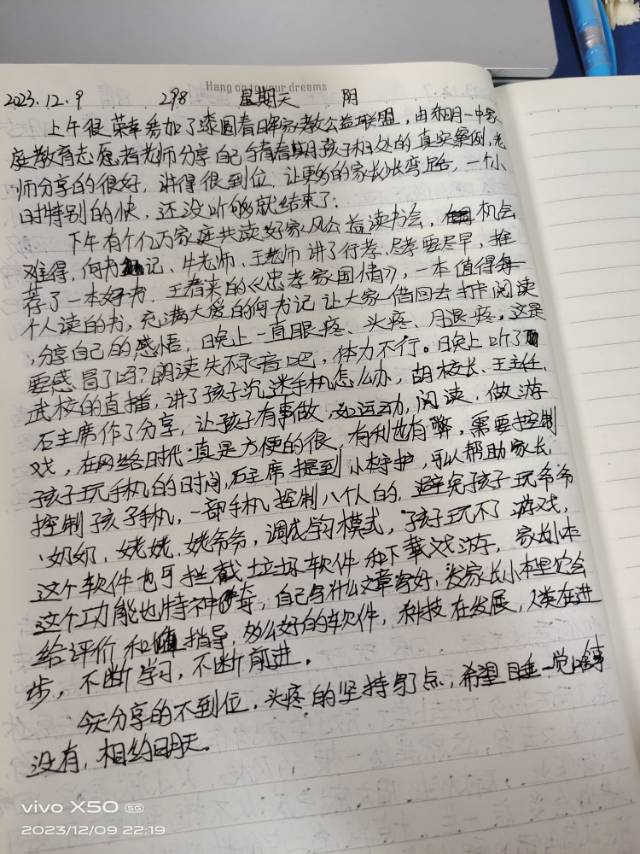 Hang on to your dreams
2023.12.9 298 星期天 阴
上午很荣幸参加了漆园春晖家教公益联盟，由和阳一中家
庭教育志愿者老师分享自己与青春期孩子相处的真实案例，老
师分享的很好，讲得很到位，让更多的家长受益，一个小
时特别的快，还没听够就结束了；
下午有个亿万家庭共读好家风公益读书会，机会
难得，何书记、牛老师、王老师讲了行孝、尽孝要尽早，推
荐了一本好书，王春来的《忠孝家国情》，一本值得每
个人读的书，充满大爱的何书记让大家借回去打卡阅读
，分享自己的感悟，日晚上一直眼疼、头疼、月退疼，这是
要感冒了吗？朗读失不录音吧，体力不行。日晚上听了
武校的直播，讲了孩子沉迷手机怎么办，胡校长、王主任、
石主席作了分享，让孩子有事做，运动，阅读，做游
戏，在网络时代真是方便的很，有利也有弊，需要控制
孩子玩手机的时间，石主席提到小精护，可以帮助家长
控制孩子手机，一部手机控制八个人的，避免孩子玩爷爷
、奶奶、姥姥、姥爷，调成学习模式，孩子玩不了游戏，
这个软件也可拦截垃圾软件和下载戏游，家长小本
这个功能也特神奇，自己写什么文章写好，发家长小本里它会
给评价和指导，多么好的软件，科技在发展，人类在进
步，不断学习，不断前进。
今天分享的不到位，头疼的坚持写了点，希望睡一觉啥事
没有，相约明天。
vivo X50 5G
2023/12/09 22:19